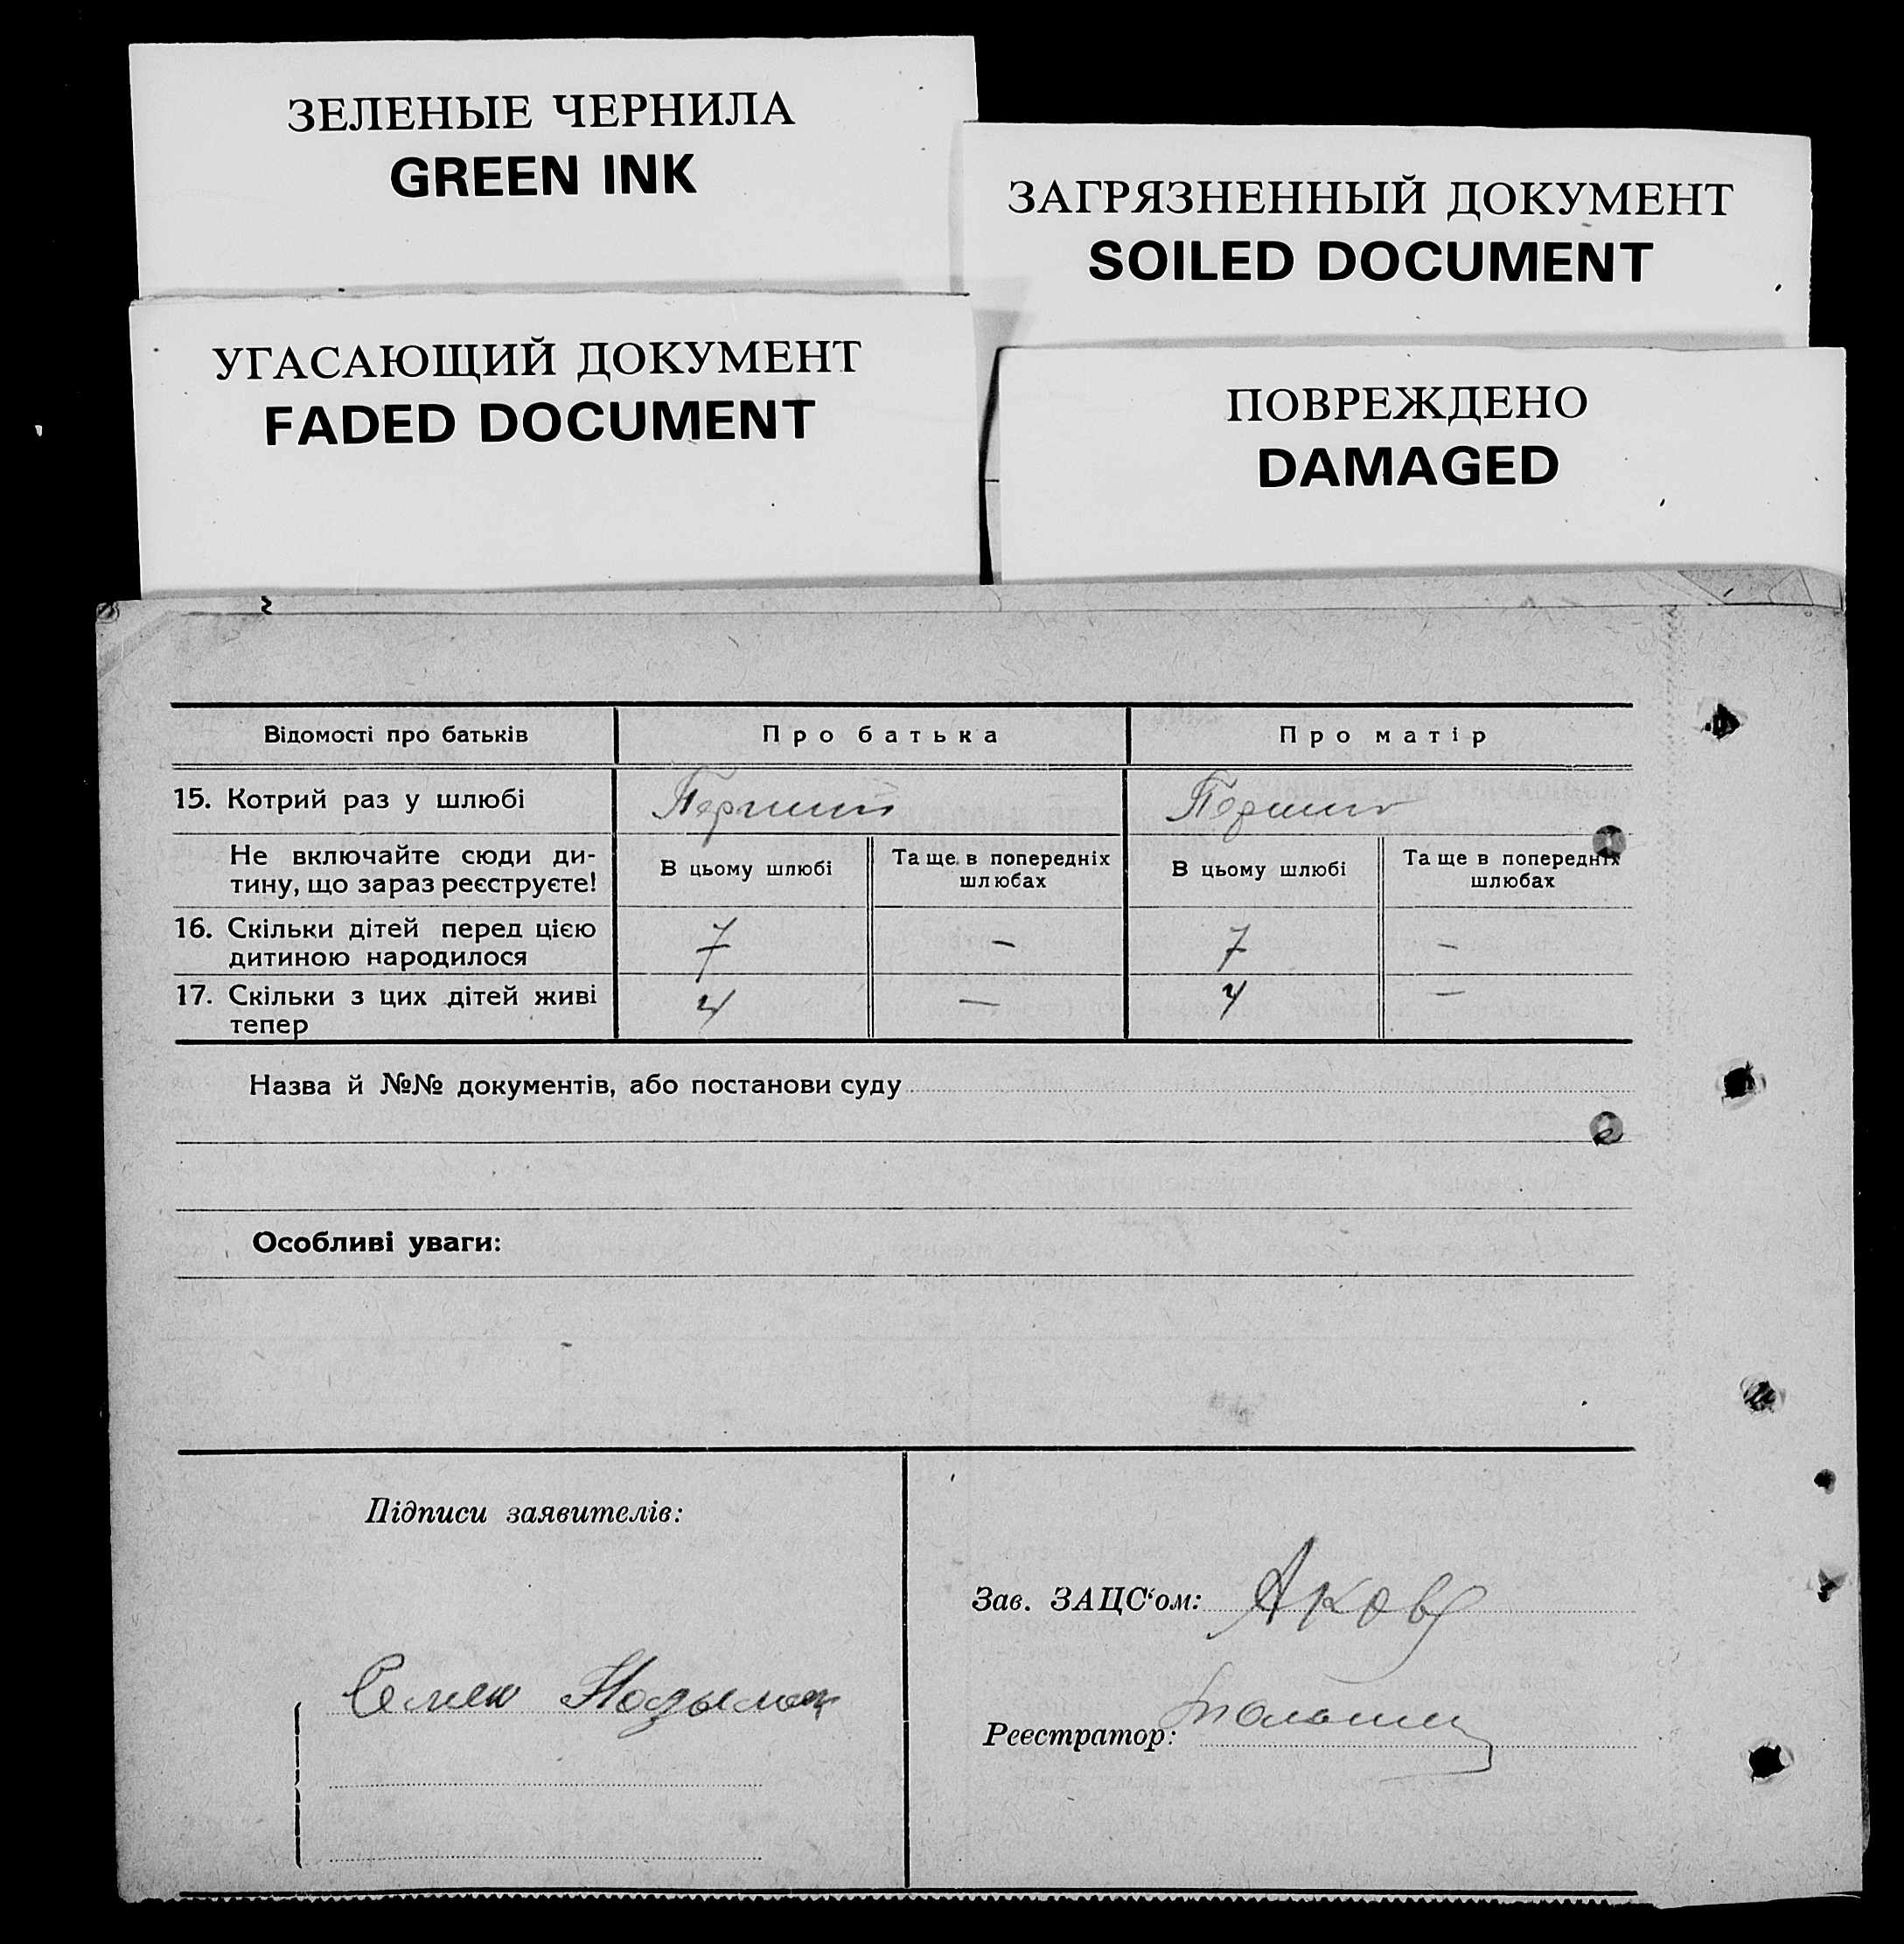 ЗЕЛЕНЫЕ ЧЕРНИЛА
GREEN INK
ЗАГРЯЗНЕННЫЙ ДОКУМЕНТ
SOILED DOCUMENT
УГАСАЮЩИЙ ДОКУМЕНТ
FADED DOCUMENT
ПОВРЕЖДЕНО
DAMAGED
Відомості про батьків
Про батька
Про матір
15. Котрий раз у шлюбі
Перший
Перший
Не включайте сюди ди-
тину, що зараз реєструєте!
В цьому шлюбі
Та ще в попередніх
шлюбах
В цьому шлюбі
Та ще в попередніх
шлюбах
16. Скільки дітей перед цією
дитиною народилося
7
–
7
–
17. Скільки з цих дітей живі
тепер
4
–
4
–
Назва й №№ документів, або постанови суду
Особливі уваги:
Підписи заявителів:
Зав. ЗАЦС‘ом:
Реєстратор: